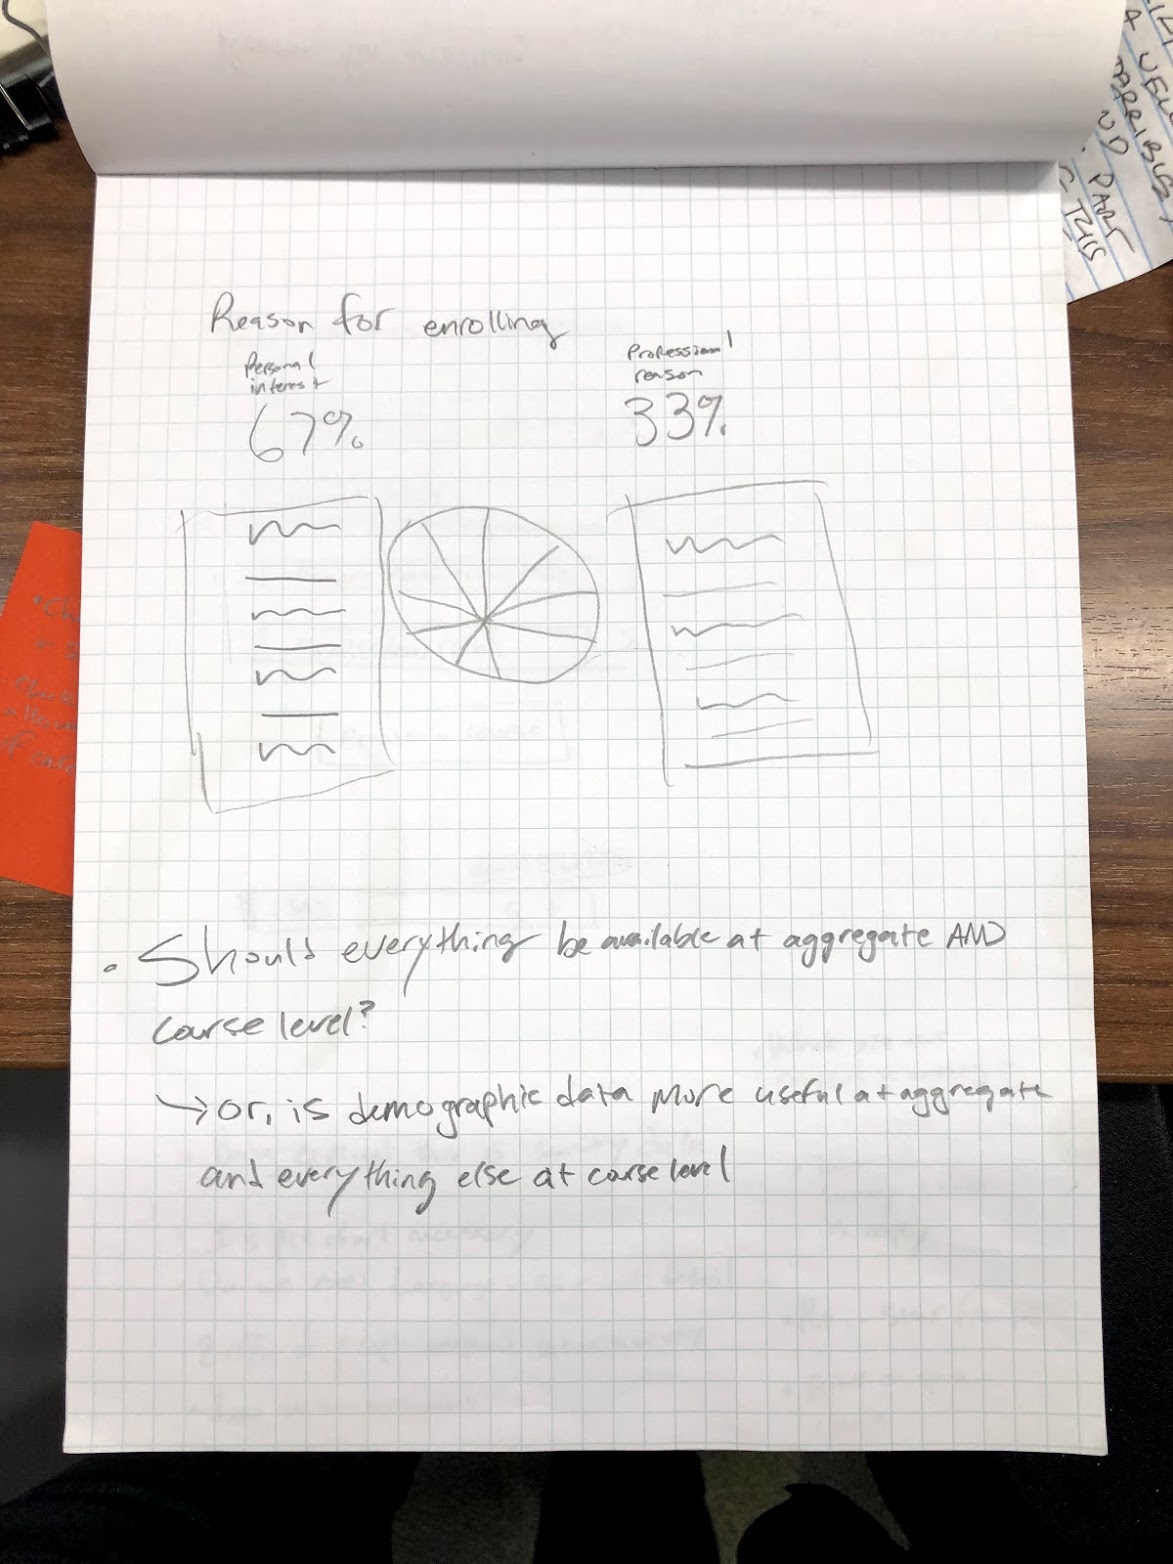 Reason for enrolling
Personal
interest
67%
Professional
reason
33%
• Should everything be available at aggregate AND
course level?
→ or, is demographic data more useful at aggregate
and everything else at course level
A
ND PART
THIS